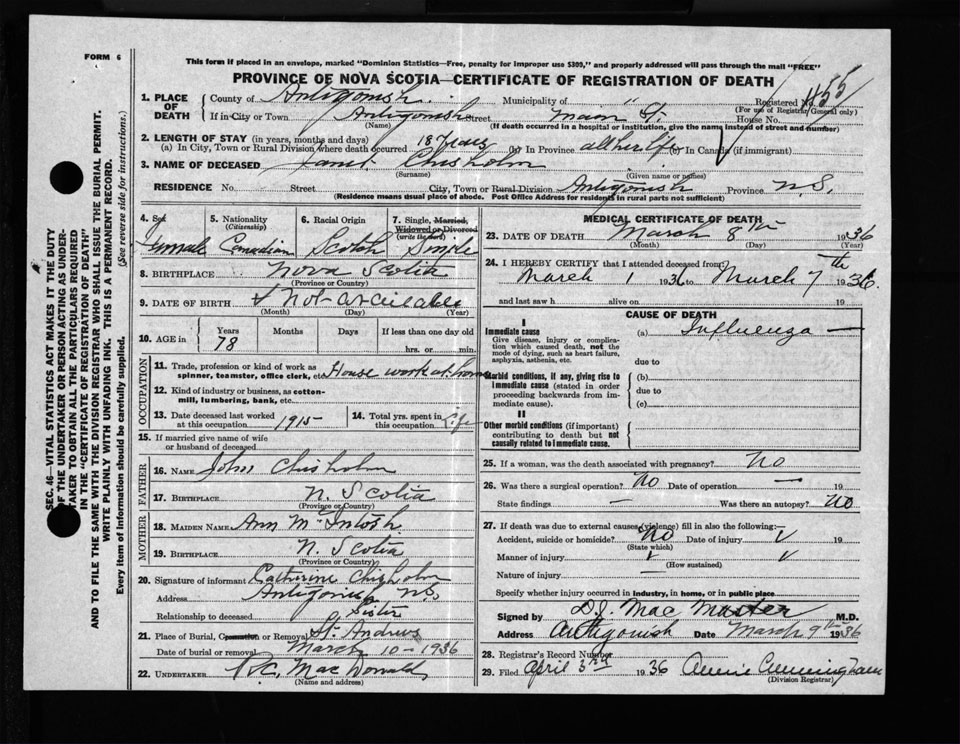 FORM 6
This form if placed in an envelope, marked "Dominion Statistics—Free, penalty for improper use $300," and properly addressed will pass through the mail "FREE"
PROVINCE OF NOVA SCOTIA—CERTIFICATE OF REGISTRATION OF DEATH
1. PLACE OF DEATH County of Antigonish. Municipality of " Registered No. 455
(For use of Registrar General only)
If in City or Town Antigonish Street Main St. House No.
(Name) (If death occurred in a hospital or institution, give the name instead of street and number)
2. LENGTH OF STAY (in years, months and days)
(a) In City, Town or Rural Division where death occurred 18 Years (b) In Province all her life (c) In Canada (if immigrant)
3. NAME OF DECEASED Janet Chisholm
(Surname) (Given name or names)
RESIDENCE No. Street City, Town or Rural Division Antigonish Province N.S.
(Residence means usual place of abode. Post Office Address for residents in rural parts not sufficient)
4. Sex 5. Nationality 6. Racial Origin 7. Single, Married,
(Citizenship) Widowed or Divorced
(write the word)
Female Canadian Scotch Single
8. BIRTHPLACE Nova Scotia
(Province or Country)
9. DATE OF BIRTH Not available
(Month) (Day) (Year)
10. AGE in Years Months Days If less than one day old
78 hrs. or min.
OCCUPATION
11. Trade, profession or kind of work as
spinner, teamster, office clerk, etc. House work at home
12. Kind of industry or business, as cotton-
mill, lumbering, bank, etc.
13. Date deceased last worked
at this occupation 1915
14. Total yrs. spent in
this occupation Life
15. If married give name of wife
or husband of deceased
FATHER
16. NAME John Chisholm
17. BIRTHPLACE N. Scotia
(Province or Country)
MOTHER
18. MAIDEN NAME Ann McIntosh
19. BIRTHPLACE N. Scotia
(Province or Country)
20. Signature of informant Catherine Chisholm
Address Antigonish N.S.
Relationship to deceased Sister
21. Place of Burial, Cremation or Removal St. Andrews
Date of burial or removal March 10-1936
22. UNDERTAKER MacDonald
(Name and address)
MEDICAL CERTIFICATE OF DEATH
23. DATE OF DEATH March 8th 1936
(Month) (Day) (Year)
24. I HEREBY CERTIFY that I attended deceased from:
March 1 1936 to March 7th 1936.
and last saw h alive on 19
CAUSE OF DEATH
I
Immediate cause (a) Influenza —
Give disease, injury or complica-
tion which caused death, not the
mode of dying, such as heart failure,
asphyxia, asthenia, etc.
due to
Morbid conditions, if any, giving rise to (b)
immediate cause (stated in order due to
proceeding backwards from im-
mediate cause). (c)
II
Other morbid conditions (if important)
contributing to death but not
causally related to immediate cause.
25. If a woman, was the death associated with pregnancy? No
26. Was there a surgical operation? No Date of operation — 19
State findings — Was there an autopsy? No
27. If death was due to external causes (violence) fill in also the following:—
Accident, suicide or homicide? No Date of injury 19
(State which)
Manner of injury
(How sustained)
Nature of injury —
Specify whether injury occurred in industry, in home, or in public place
Signed by D.J. MacMaster M.D.
Address Antigonish Date March 9th 1936
28. Registrar's Record Number
29. Filed April 3rd 1936 Annie Cunningham
(Division Registrar)
SEC. 46—VITAL STATISTICS ACT MAKES IT THE DUTY
OF THE UNDERTAKER OR PERSON ACTING AS UNDER-
TAKER TO OBTAIN ALL THE PARTICULARS REQUIRED
IN THE "CERTIFICATE OF REGISTRATION OF DEATH"
AND TO FILE THE SAME WITH THE DIVISION REGISTRAR WHO SHALL ISSUE THE BURIAL PERMIT.
WRITE PLAINLY WITH UNFADING INK. THIS IS A PERMANENT RECORD.
Every item of information should be carefully supplied. (See reverse side for instructions.)